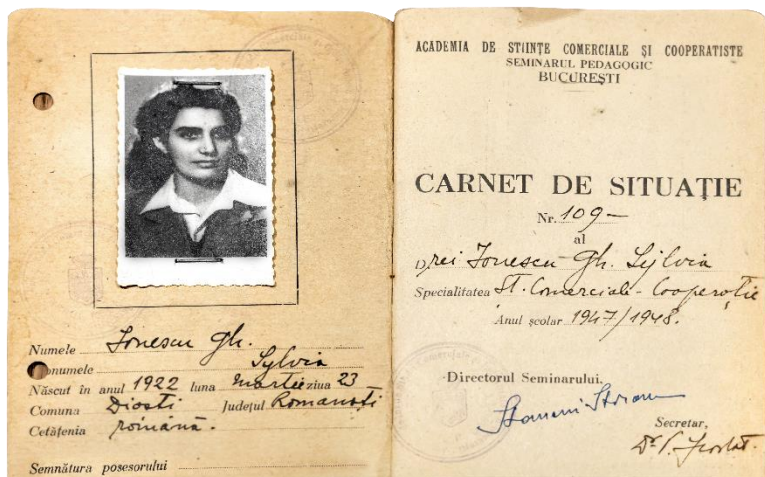 Numele Ionescu Gh.
onumele Sylvia
Născut în anul 1922 luna martie ziua 23
Comuna Diosti Județul Romanați
Cetățenia română.
Semnătura posesorului
ACADEMIA DE STIINȚE COMERCIALE ȘI COOPERATISTE
SEMINARUL PEDAGOGIC
BUCUREȘTI
CARNET DE SITUAȚIE
Nr. 109-
al
Drei Ionescu Gh. Sylvia
Specialitatea St. Comerciale - Cooperație
Anul școlar 1947/1948.
Directorul Seminarului,
Secretar,